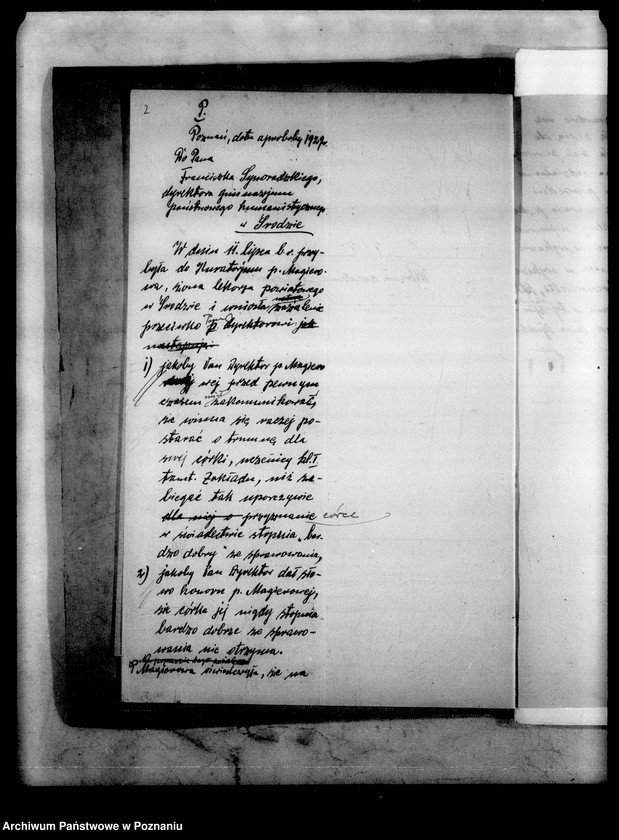 2
P.
Poznań, data aprobaty 1929.
Do Pana
Franciszka
dyrektora gimnazjum
państwowego humanistycznego
w Środzie
W dniu 11. lipca b.r. przy-
była do Kuratorjum p. Magiero-
wa, żona lekarza powiatowego
w Środzie i wniosła zażalenie
przeciwko Panu Dyrektorowi jak
następuje:
1) jakoby Pan Dyrektor p. Magiero
wej przed pewnym
czasem zakomunikował,
że winna się raczej po-
starać o trumnę dla
swej córki, uczenicy kl. I.
tamt. Zakładu, niż za-
biegać tak uporczywie
dla niej o przyznanie córce
w świadectwie stopnia „bar-
dzo dobry" za sprawowanie,
2) jakoby Pan Dyrektor dał sło-
wo honoru p. Magierowej,
że córka jej nigdy stopnia
bardzo dobrze za sprawo-
wania nie otrzyma.
P. Magierowa oświadczyła, że na
Archiwum Państwowe w Poznaniu